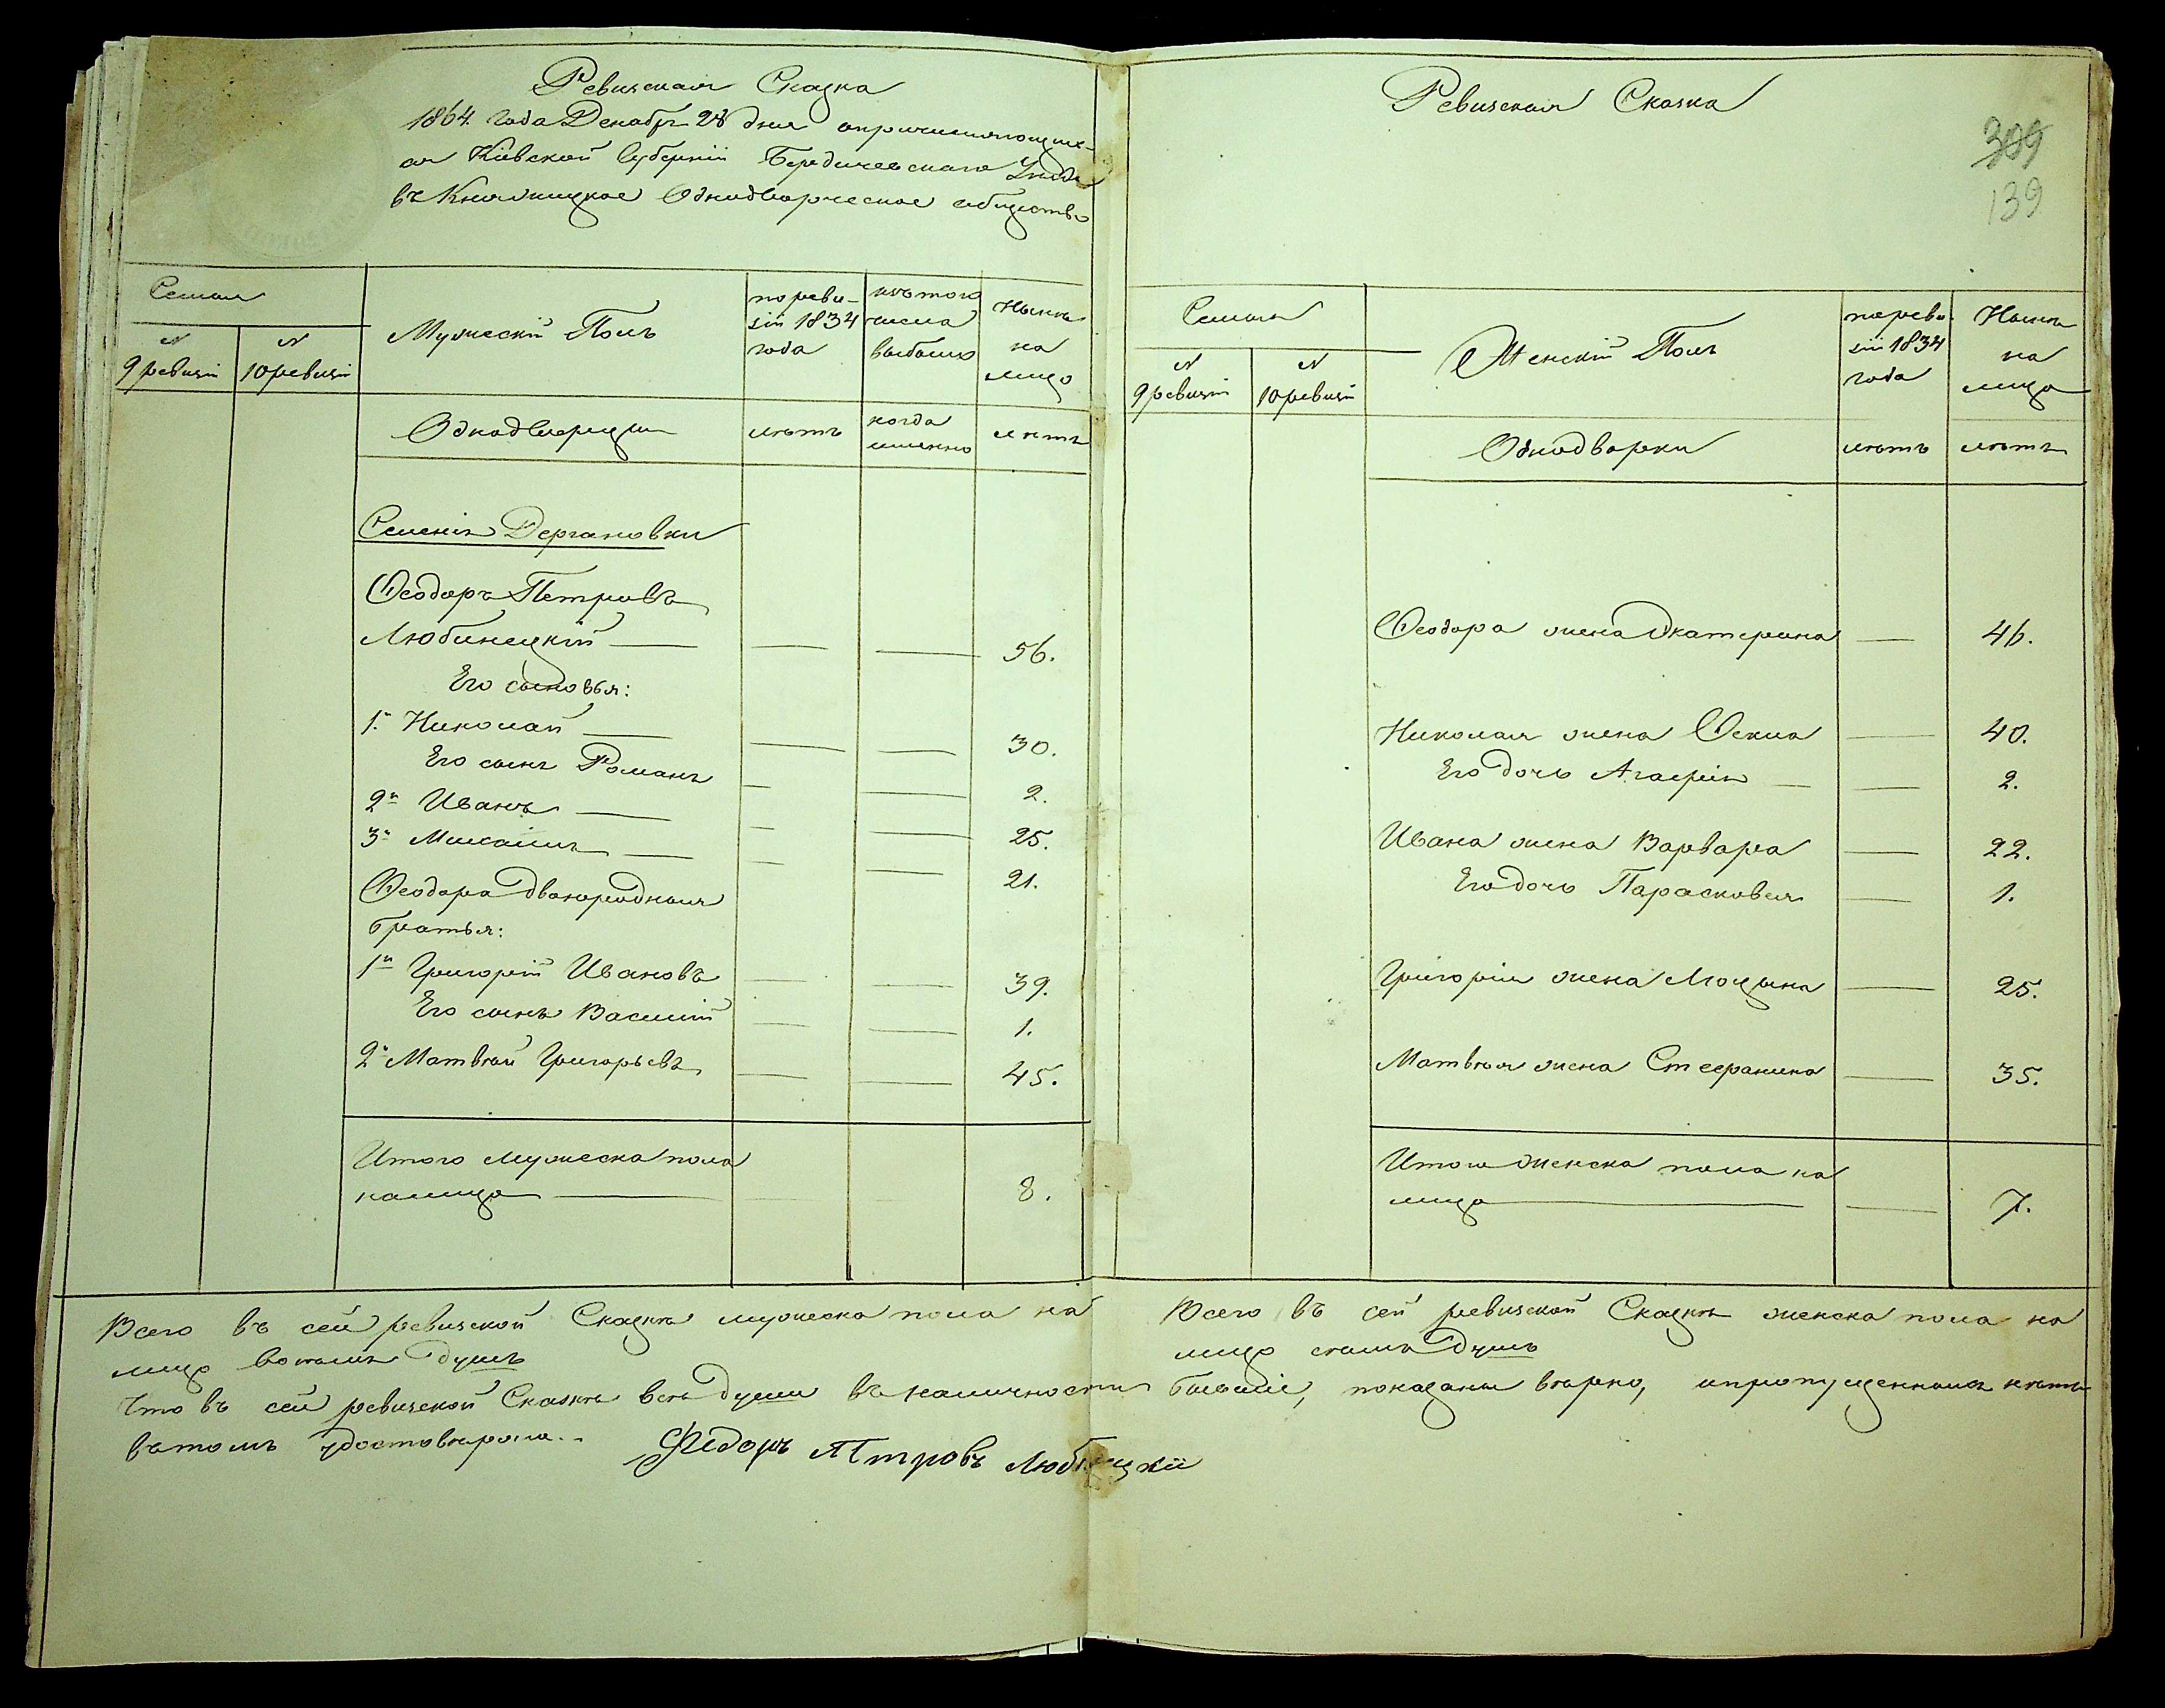 Ревизская Сказка
1864 года Декабр. 28 дня о причисляющих-
ся Кіевской Губерніи Бердичевскаго Уезда
въ Княжицкое Однодворческое общество
Семьи
N
9 ревизіи
N
10 ревизіи
Мужескій Полъ
по реви-
зіи 1834
года
изъ того
числа
выбыло
Ныне
на
лицо
Однодворцы
летъ
когда
именно
летъ
Селенія Дергановки
Ѳеодоръ Петровъ
Любинецкій 56.
Его сыновья:
1.й Николай 30.
Его сынъ Романъ 2.
2й Иванъ 25.
3й Михаилъ 21.
Ѳеодора двоюродныя
братья:
1й Григорій Ивановъ 39.
Его сынъ Василій 1.
2й Матвѣй Григорьевъ 45.
Итого мужеска пола
налицо 8.
Всего въ сей ревизской Сказкѣ мужеска пола на
лицо восемь душъ
Ревизская Сказка
309
139
Семьи
N
9 ревизіи
N
10 ревизіи
Женскій Полъ
по реви-
зіи 1834
года
Ныне
на
лицо
Однодворки
летъ
летъ
Ѳеодора жена Екатерина 46.
Николая жена Ѳекла 40.
Его дочь Агафія 2.
Ивана жена Варвара 22.
Его дочь Парасковья 1.
Григорія жена 25.
Матвѣя жена Стефанина 35.
Итого женска пола на
лицо 7.
Всего въ сей ревизской Сказкѣ женска пола на
лицо семь душъ
Что въ сей ревизской Сказкѣ всѣ души въ наличности бывшіе, показаны вѣрно, и пропущенныхъ нѣтъ
въ томъ удостовѣряю..
Федоръ Птровъ Любінцкіи